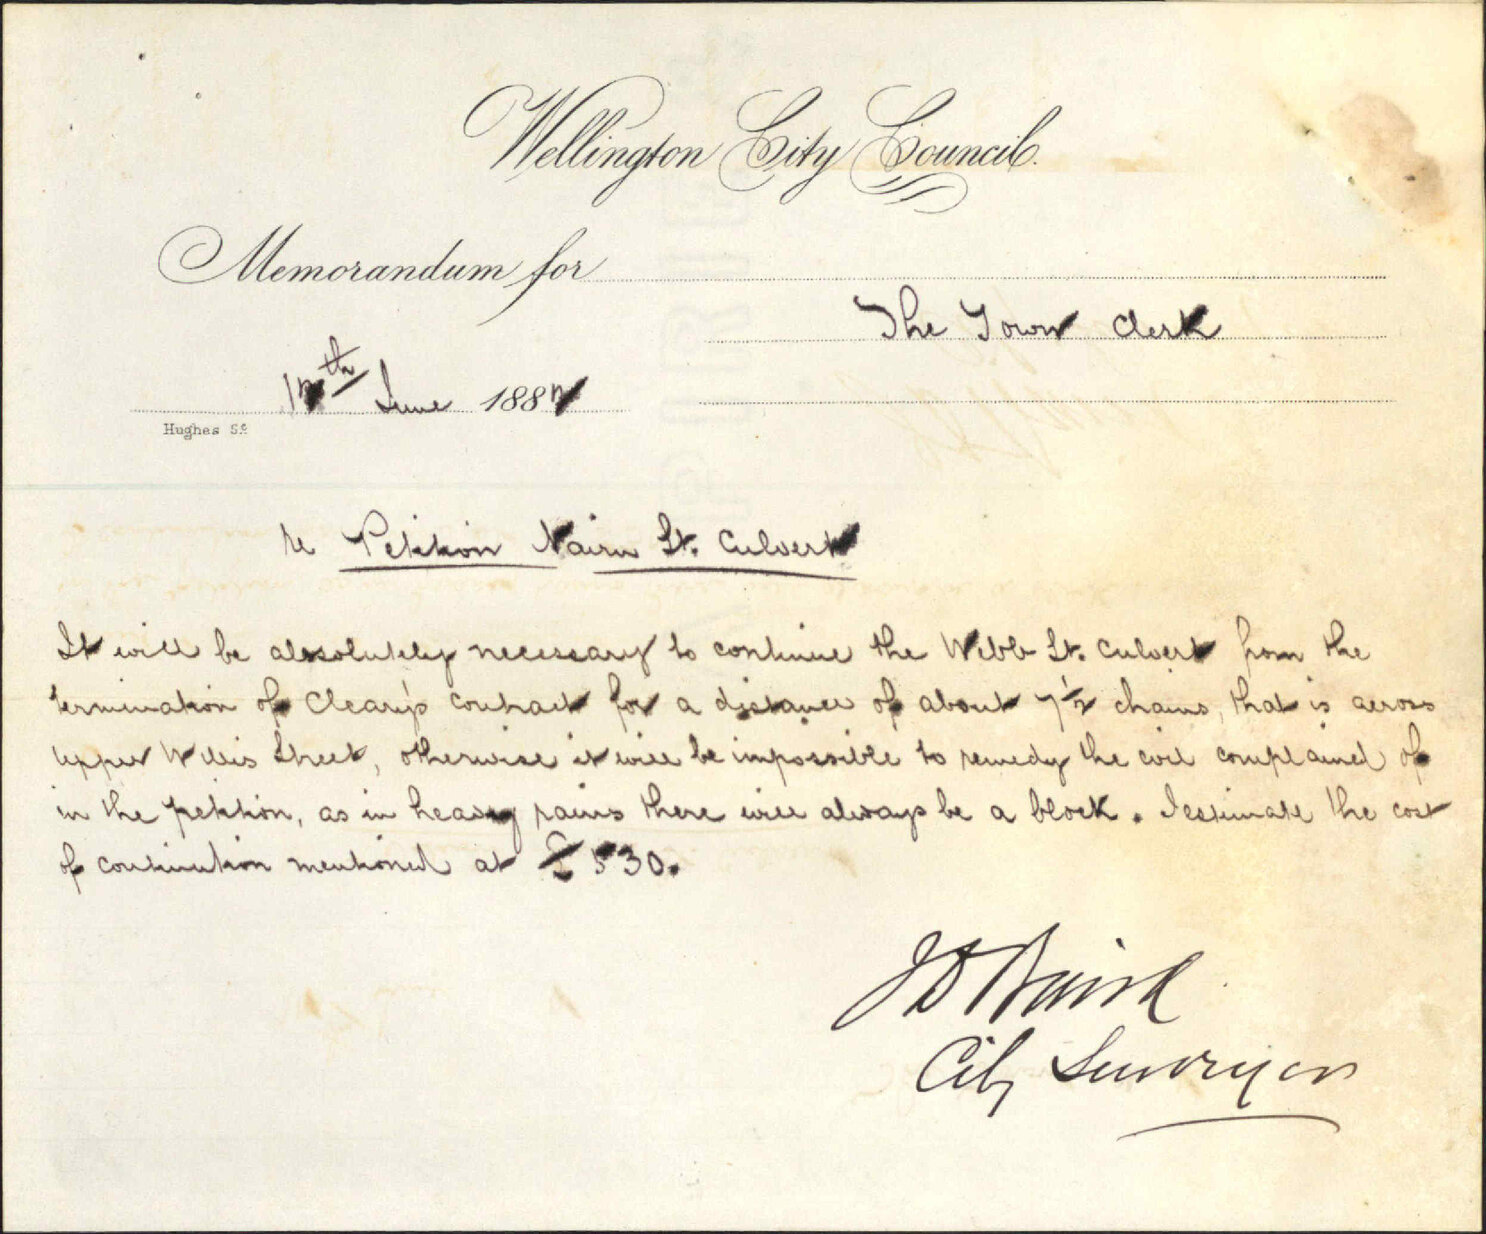 Wellington City Council.
Memorandum for
The Town Clerk
th June 188
Hughes Sc.
re Petition Nairn St. Culvert
It will be absolutely necessary to continue the Webb St. Culvert from the
termination of Cleary's contract for a distance of about 7½ chains, that is across
upper Willis Street, otherwise it will be impossible to remedy the evil complained of
in the petition, as in heavy rains there will always be a block. I estimate the cost
of continution mentioned at £530.
J D Baird
City Surveyor